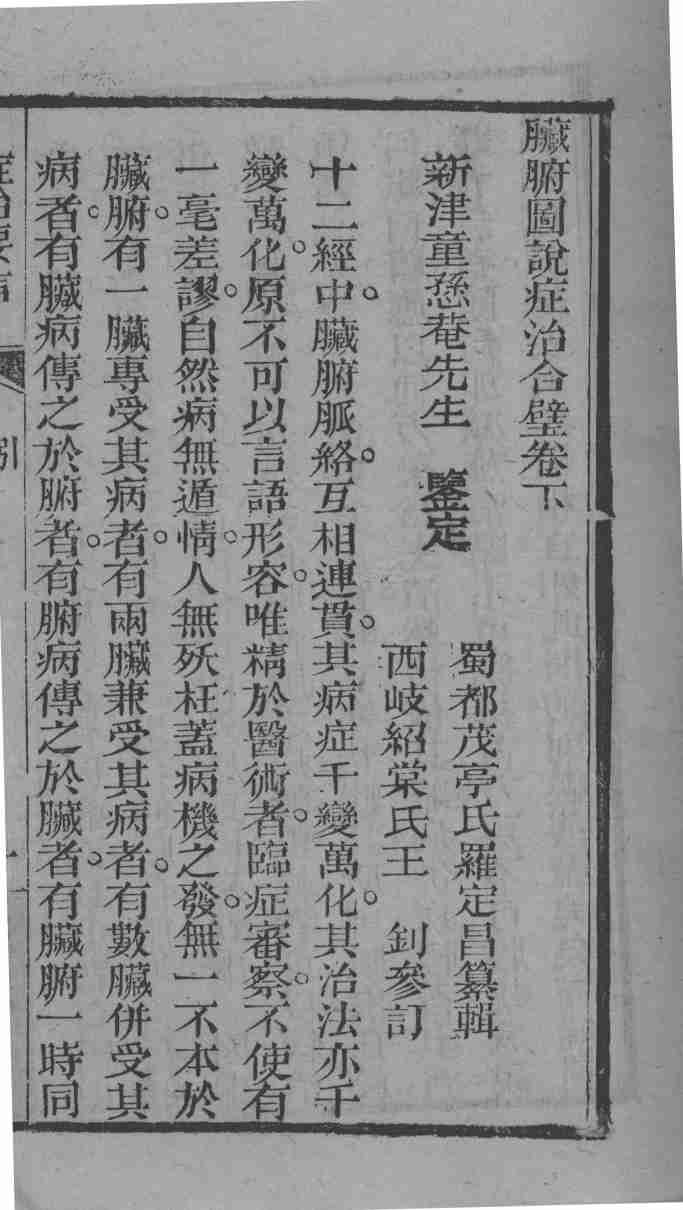 臟腑圖說症治合璧卷下
新津童㤅菴先生　鑒定
蜀都茂亭氏羅定昌纂輯
西岐紹棠氏王　釗參訂
十二經中。臟腑脈絡。互相連貫。其病症千變萬化。其治法亦千
變萬化。原不可以言語形容。唯精於醫術者。臨症審察。不使有
一毫差謬。自然病無遁情。人無殀枉蓋病機之發。無一不本於
臟腑。有一臟專受其病者。有兩臟兼受其病者。有數臟併受其
病者。有臟病傳之於腑者。有腑病傳之於臟者。有臟腑一時同
引